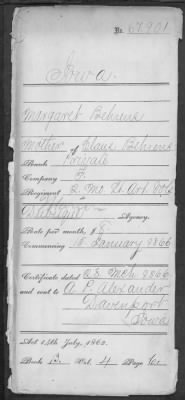 No. 67.901
Iowa
Margaret Behrens
Mother of Claus Behrens
Rank Private
Company F.
Regiment 2 Mo. Lt. Art. Vols
Agency.
Rate per month, $8
Commencing 18 January 1866
Certificate dated 28 Mch 1866
and sent to A. P. Alexander
Davenport
Iowa
Act 14th July, 1862.
Book B. Vol. 4 Page 61